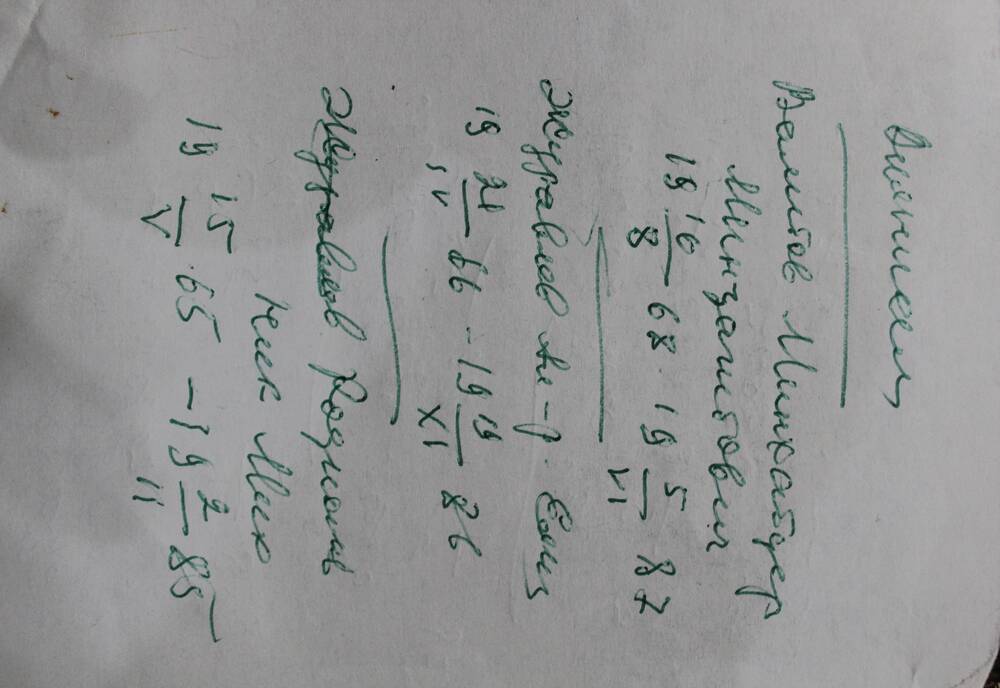 Валитов Минхайдер
Минзагитович
19 10/8 68 19 5/VI 87
Журавлов Ал-р.
19 21/IV 66 - 19 19/XI 86
Журавлов Родионов
Ник Мих
19 15/V 65 - 19 2/II 85